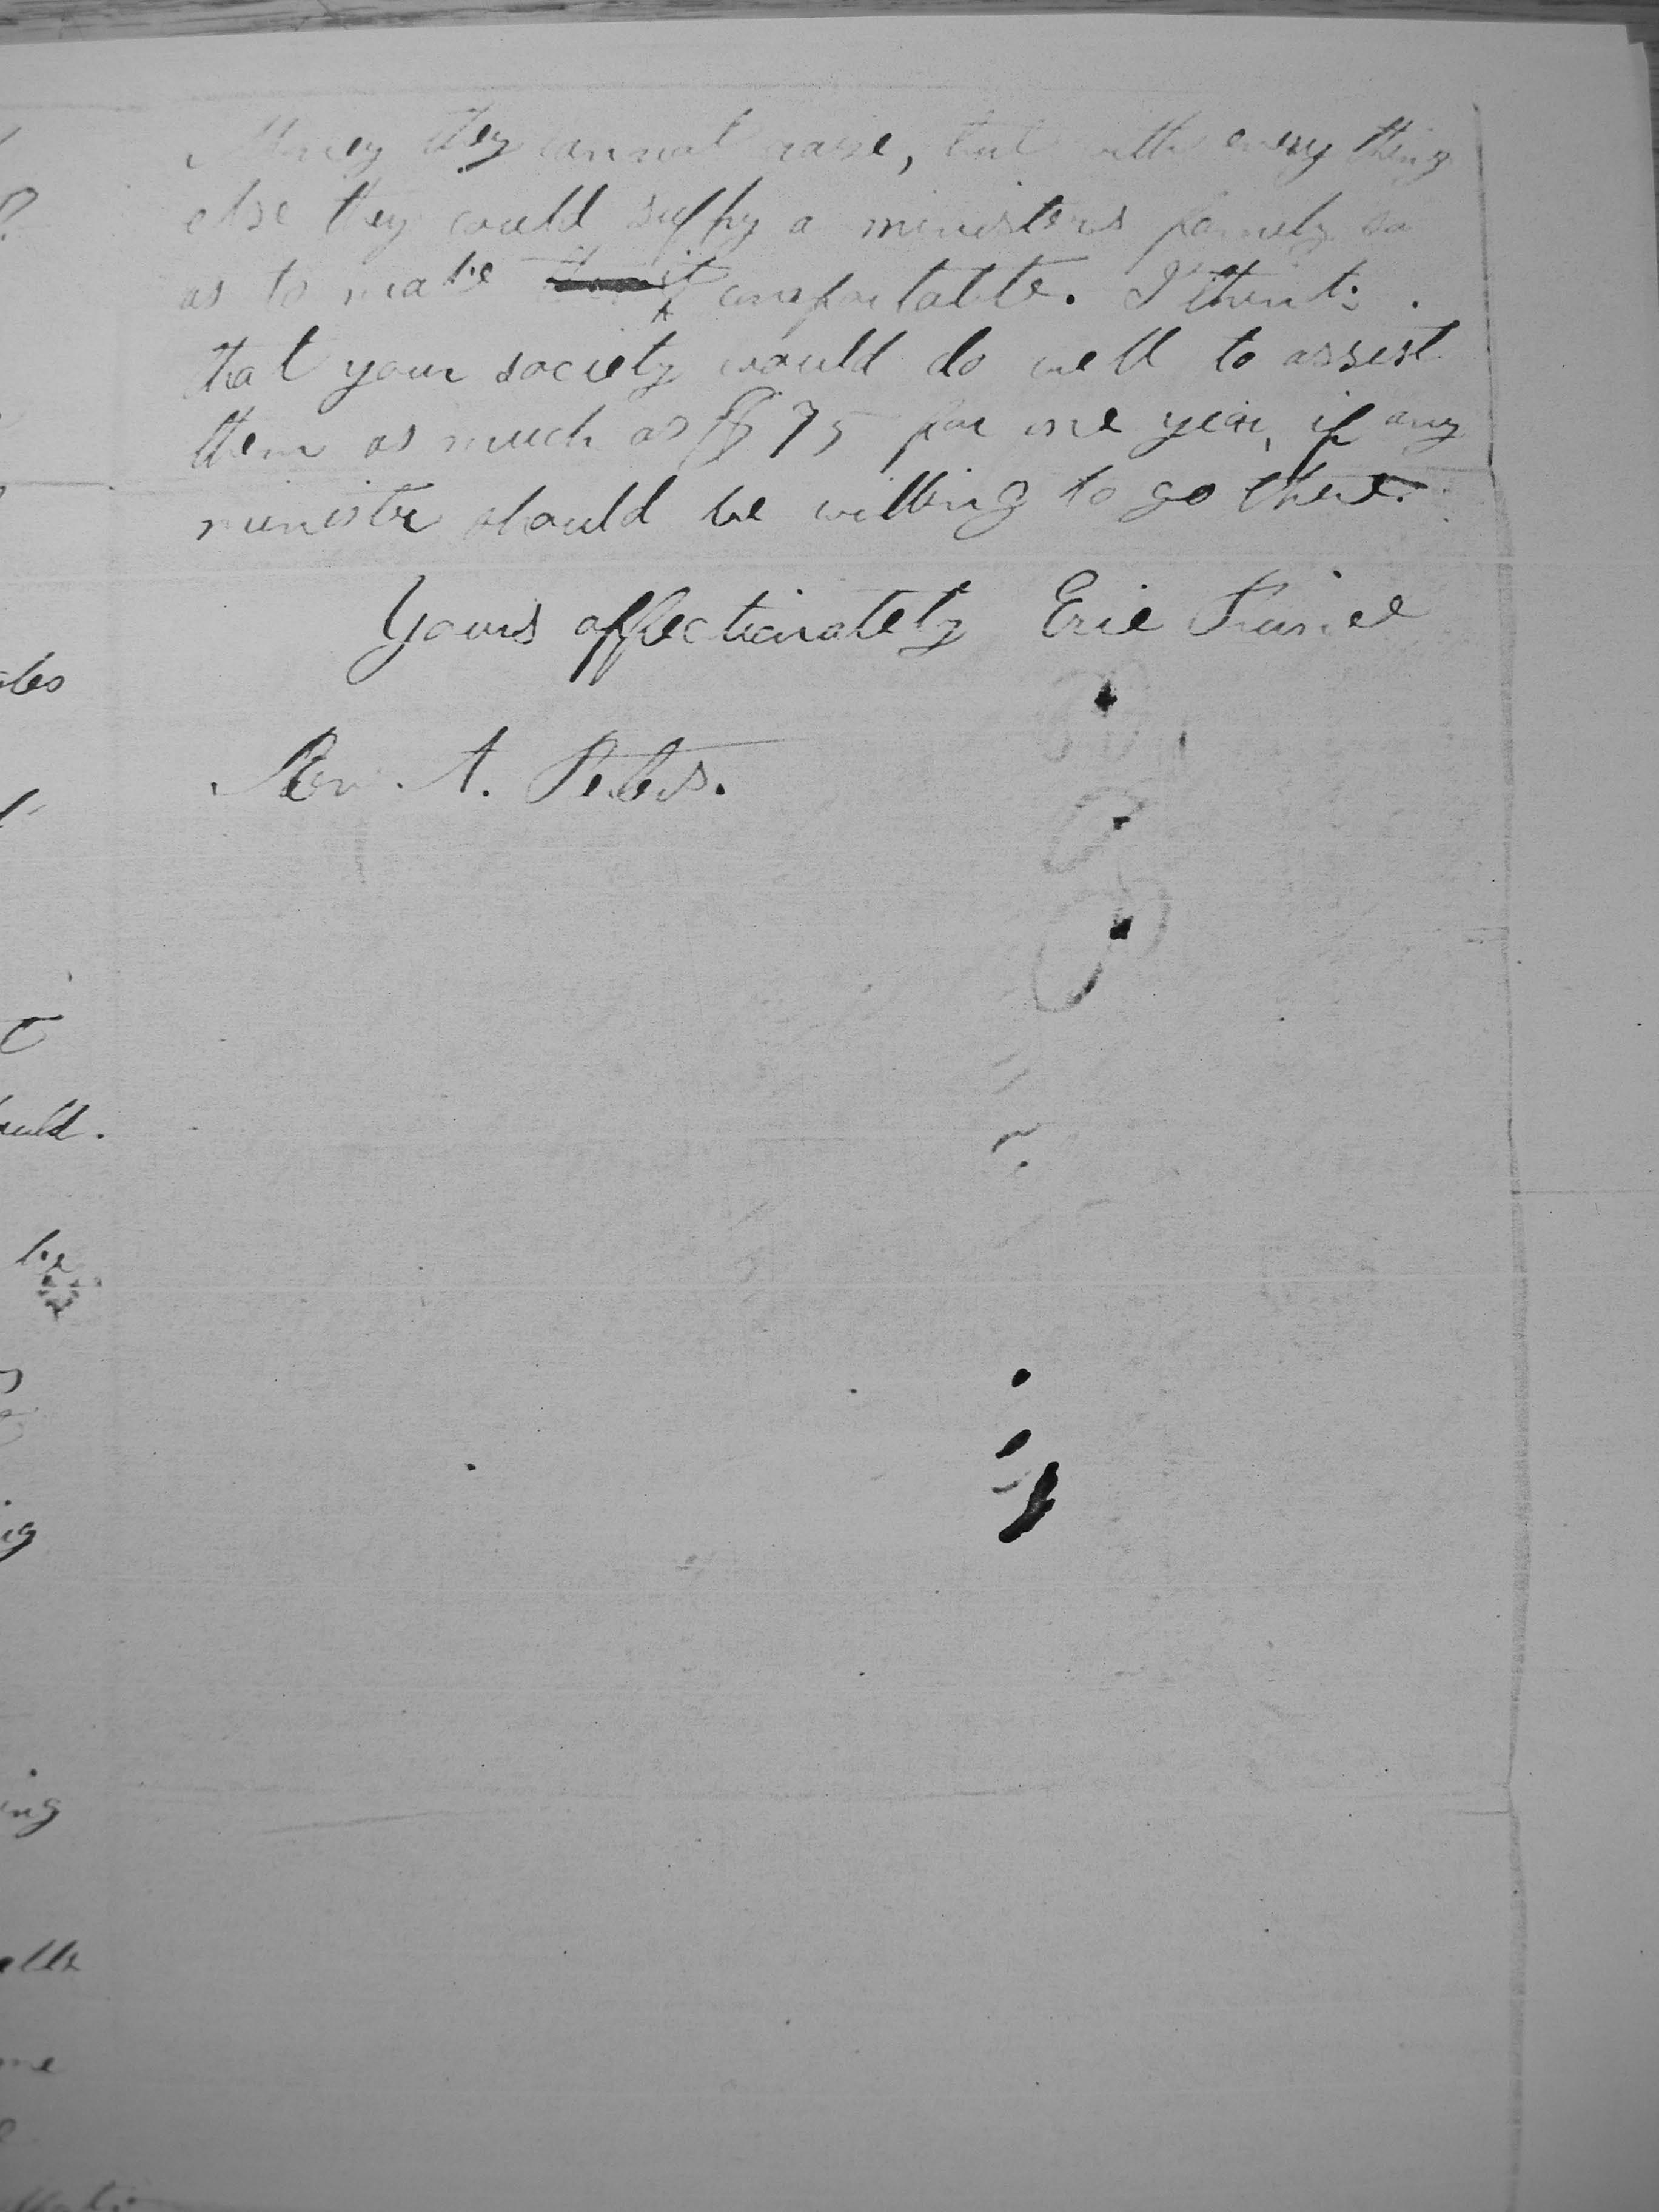 Money they cannot raise, but with every thing
else they could supply a ministers family so
as to make it comfortable. I think
that your society would do well to assist
them as much as $75 for one year, if any
minister should be willing to go there.
Yours affectionately Erie Prince
Rev. A. Peters.
ould.
be
ing